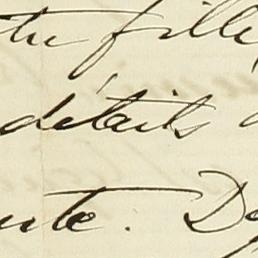 tre fille
détails d
ute. De